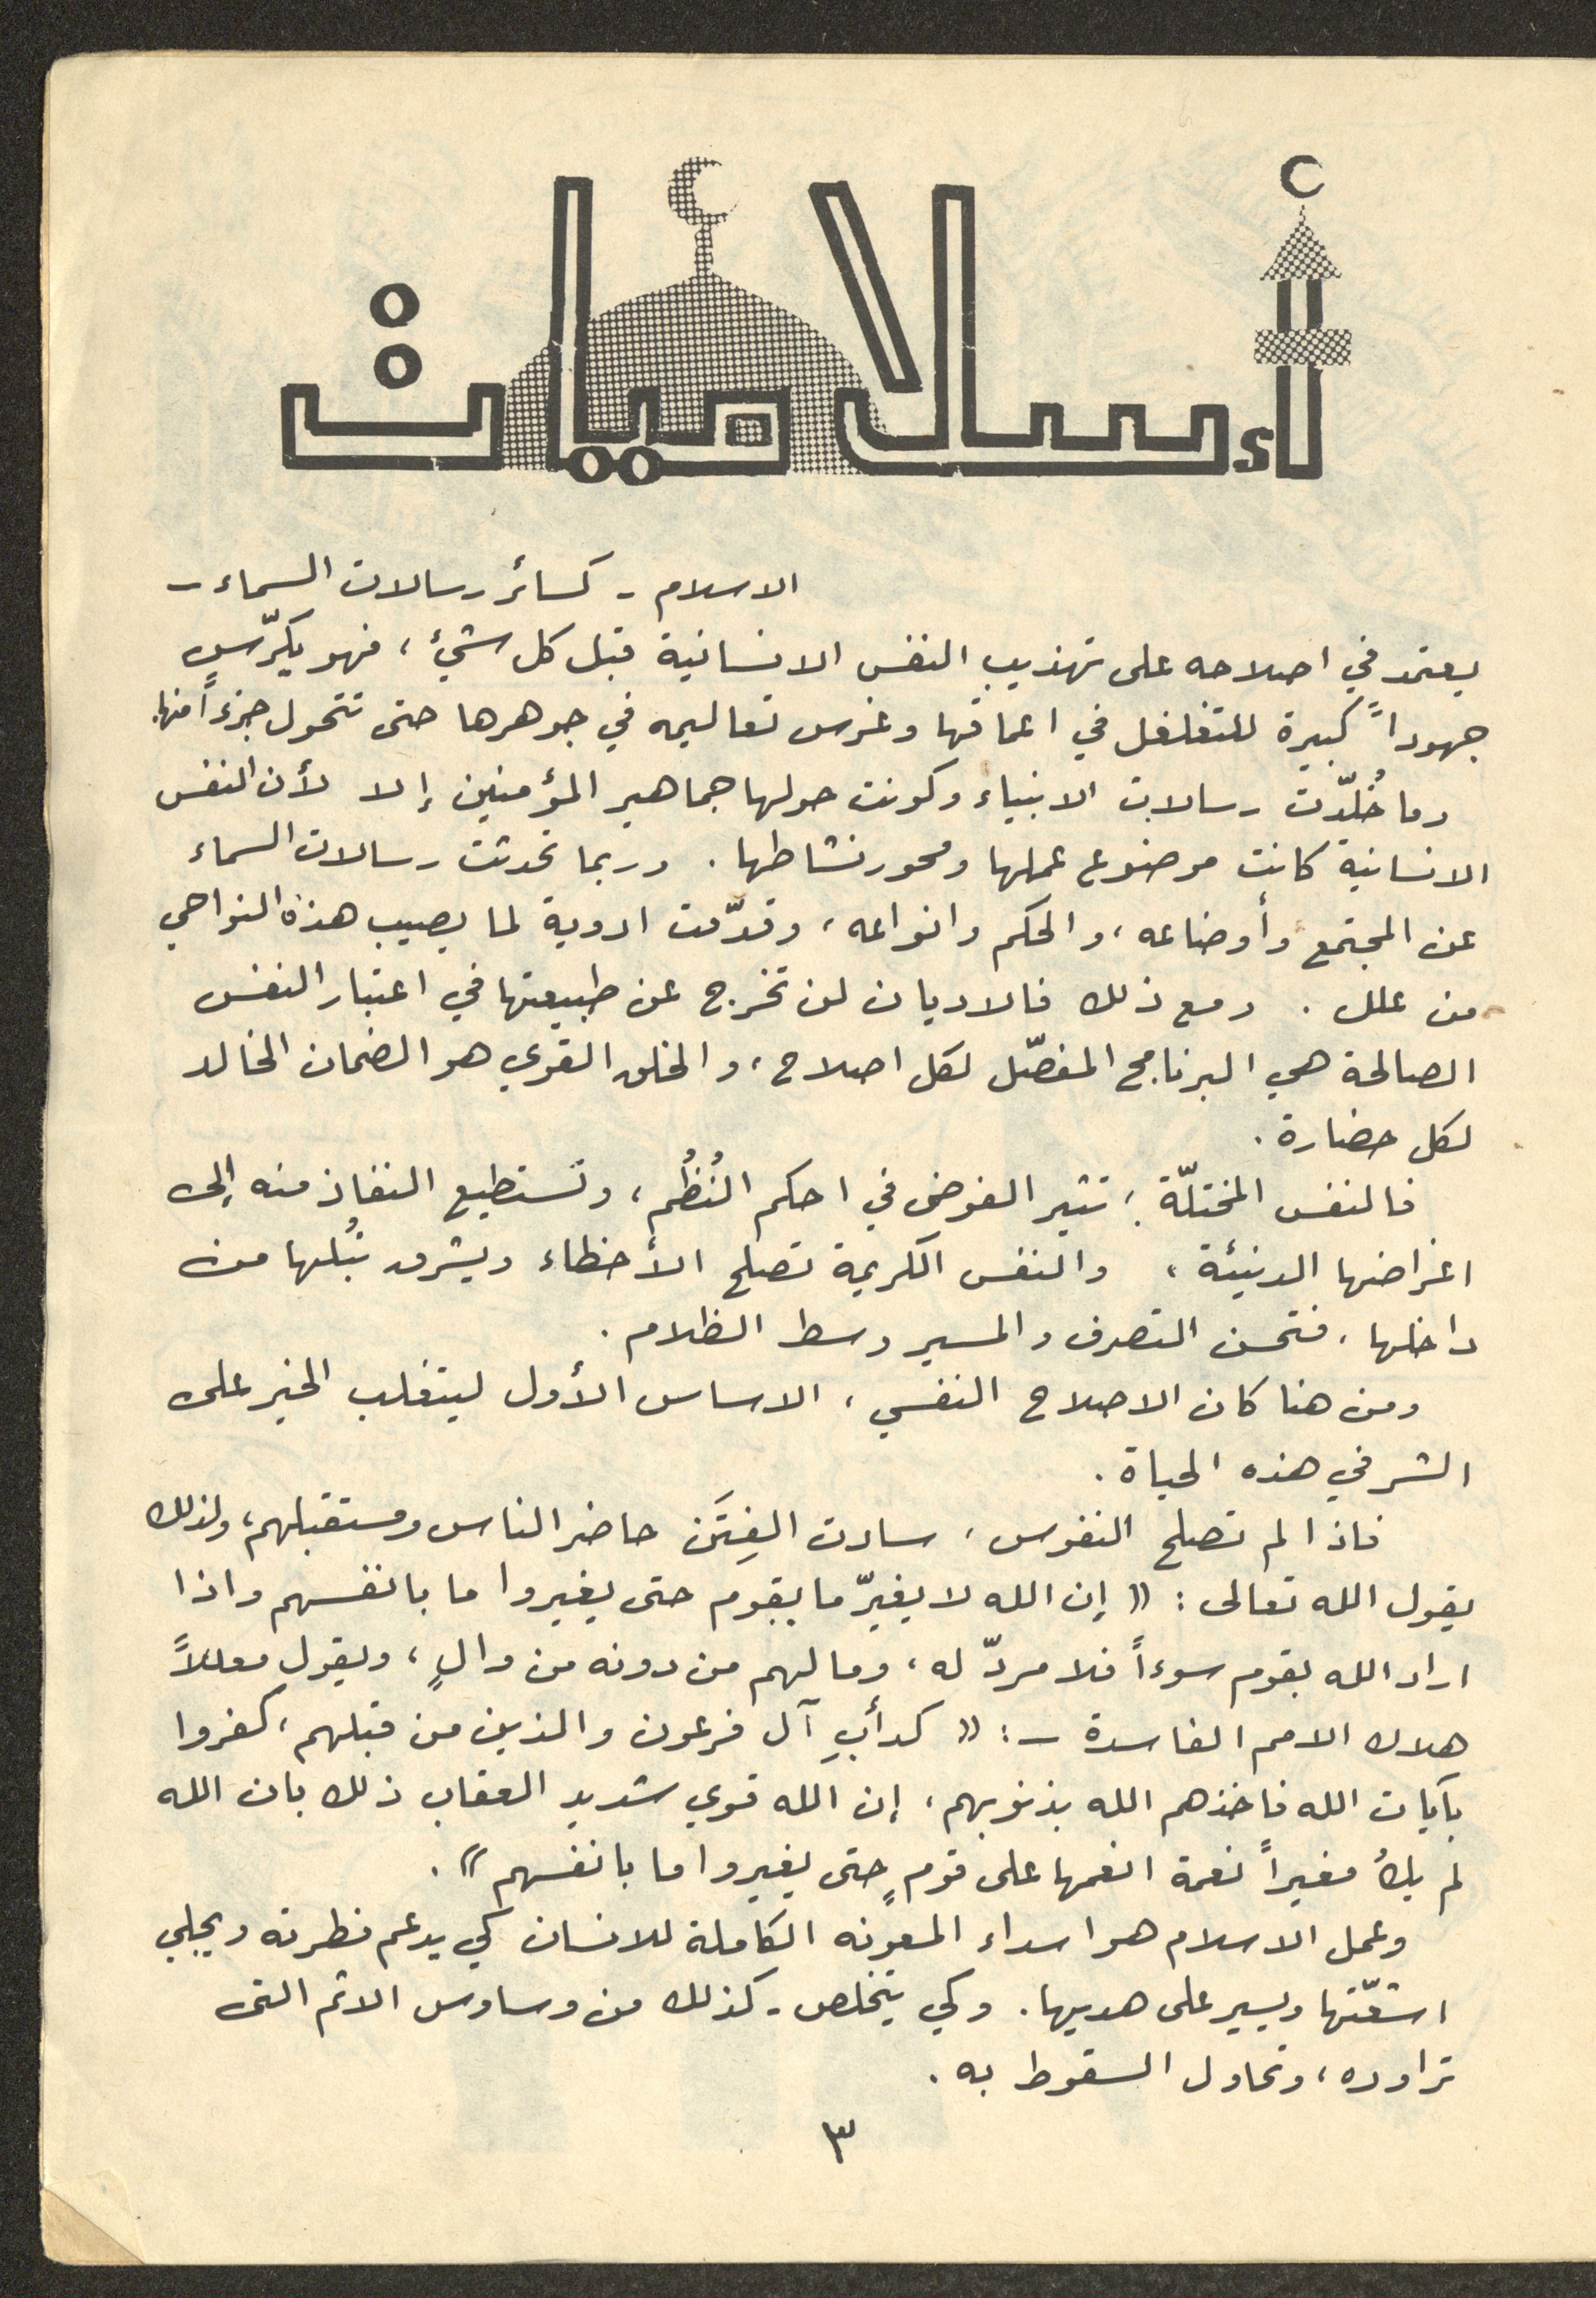 إسلاميات
الاسلام - كسائر رسالات السماء -
يعتمد في اصلاحه على تهذيب النفس الانسانية قبل كل شيئ ، فهو يكرّس
جهوداً كبيرة للتغلغل في اعماقها وغرس تعاليمه في جوهرها حتى تتحول جزءاً منها.
وما خُلدّت رسالات الانبياء وكونت حولها جماهير المؤمنين إلا لأن النفس
الانسانية كانت موضوع عملها ومحور نشاطها . وربما تحدثت رسالات السماء
عن المجتمع وأوضاعه ، والحكم وانواعه ، وقدّمت ادوية لما يصيب هذه النواحي
من علل . ومع ذلك فالاديان لن تخرج عن طبيعتها في اعتبار النفس
الصالحة هي البرنامج المفصّل لكل اصلاح ، والخلق القوي هو الضمان الخالد
لكل حضارة .
فالنفس المختلّة ، تثير الفوضى في احكم النُظُم ، وتستطيع النفاذ منه إلى
اغراضها الدنيئة ، والنفس الكريمة تصلح الأخطاء ويشرق نُبلها من
داخلها ، فتحسن التصرف والمسير وسط الظلام .
ومن هنا كان الاصلاح النفسي ، الاساس الأول ليتغلب الخير على
الشر في هذه الحياة .
فاذا لم تصلح النفوس ، سادت الفِتَن حاضر الناس ومستقبلهم ، ولذلك
يقول الله تعالى : « إن الله لا يغيرّ ما بقوم حتى يغيروا ما بانفسهم واذا
اراد الله بقوم سوءاً فلا مردّ له ، وما لهم من دونه من والٍ ، ويقول معللاً
هلاك الامم الفاسدة - : « كدأبِ آل فرعون والذين من قبلهم ، كفروا
بآيات الله فاخذهم الله بذنوبهم ، إن الله قوي شديد العقاب ذلك بان الله
لم يكُ مغيراً نعمة انعمها على قومٍ حتى يغيروا ما بانفسهم » .
وعمل الاسلام هو اسداء المعونه الكاملة للانسان كي يدعم فطرته ويجلي
اشعّتها ويسير على هديها . وكي يتخلص - كذلك من وساوس الاثم التى
تراوده ، وتحاول السقوط به .
٣